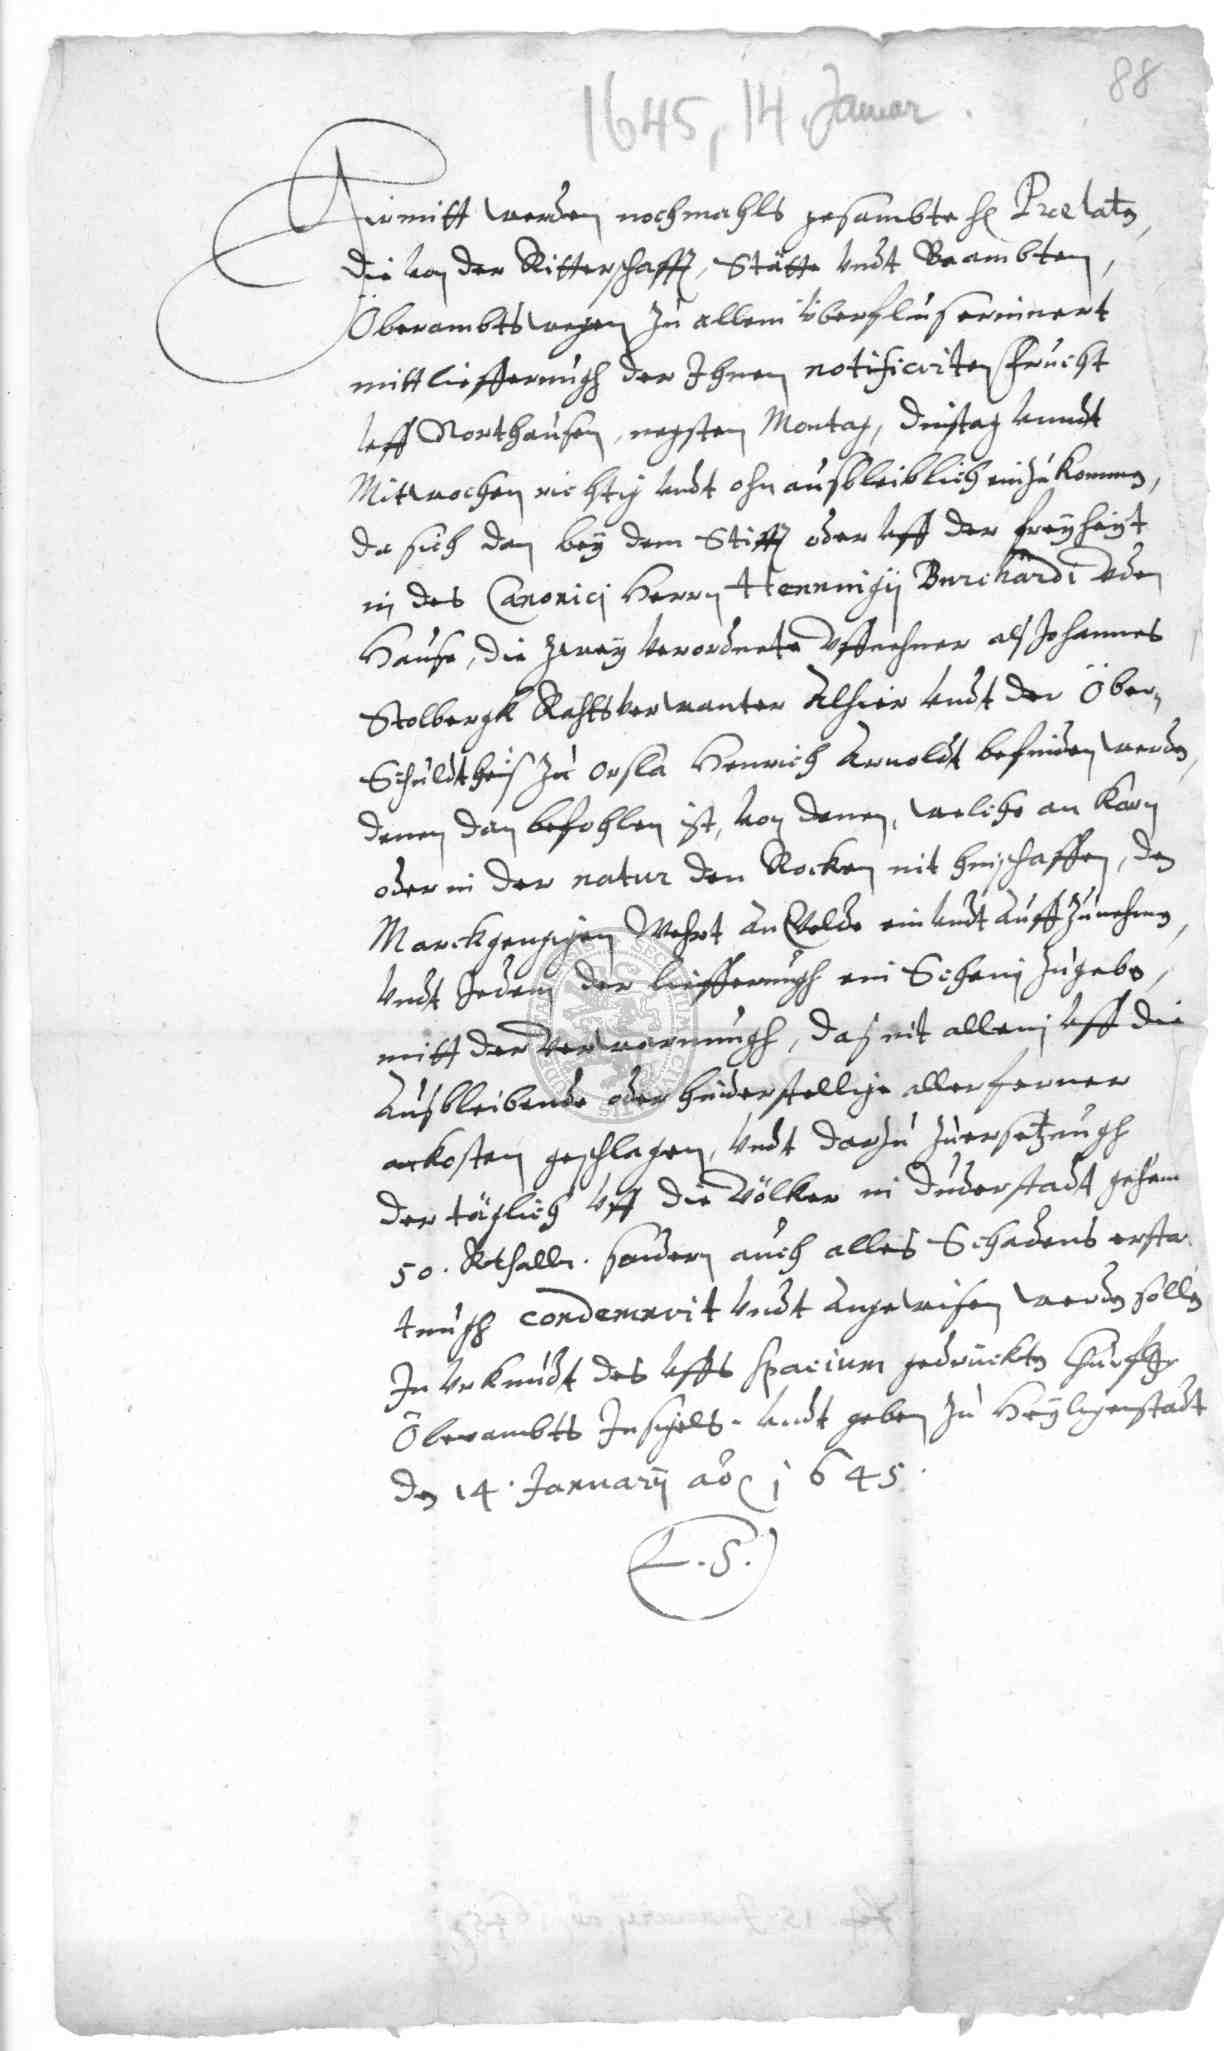 88
1645, 14. Januar.
Hiermitt werden nochmahls gesambte H. Praelatn,
die von der Ritterschafft, Stätte undt Beambten,
Oberambts wegen zu allem überflus erinnert
mitt lieffernugh der Ihnen notificirten Frucht
uff Northausen, negsten Montag, Dinstag unndt
Mitwochen richtig undt ohnausbleiblich einzukommen,
da sich dan bey dem Stifft oder uff der freyheyt
in des Canonici Herrn Henningii Burchardi
Hause, die zwey verordnete Uffnehmer als Johannes
Stolbergk Rahtsverwanter Alhier undt der Ober-
Schuldtheis zu Orsla Henrich Arnoldt befinden werden,
denen dan befohlen ist, von denen, welche an Korn
oder in der natur den Rocken nit hinschaffen, den
Marckgengigen Wehrt an Gelde ein undt Auffzunehmen,
undt Jedem der lieffernugh ein Schein zugeben,
mitt der Verwarnungh, das nit allein uff die
Ausbleibende oder hinderstellige aller ferner
unkosten geschlagen, undt darzu zu ersetzungh
der täglich uff die Völker in Duderstadt gehen
50. Rthallr. sondern auch alles Schadens ersta
tungh condemnirt undt angewisen werden sollen
In Urkundt des uffs spacium gedruckten Churfstl.
Oberambts Insigels. undt geben zu Heyligenstadt
den 14. Januarii ao 1645.
L. S.